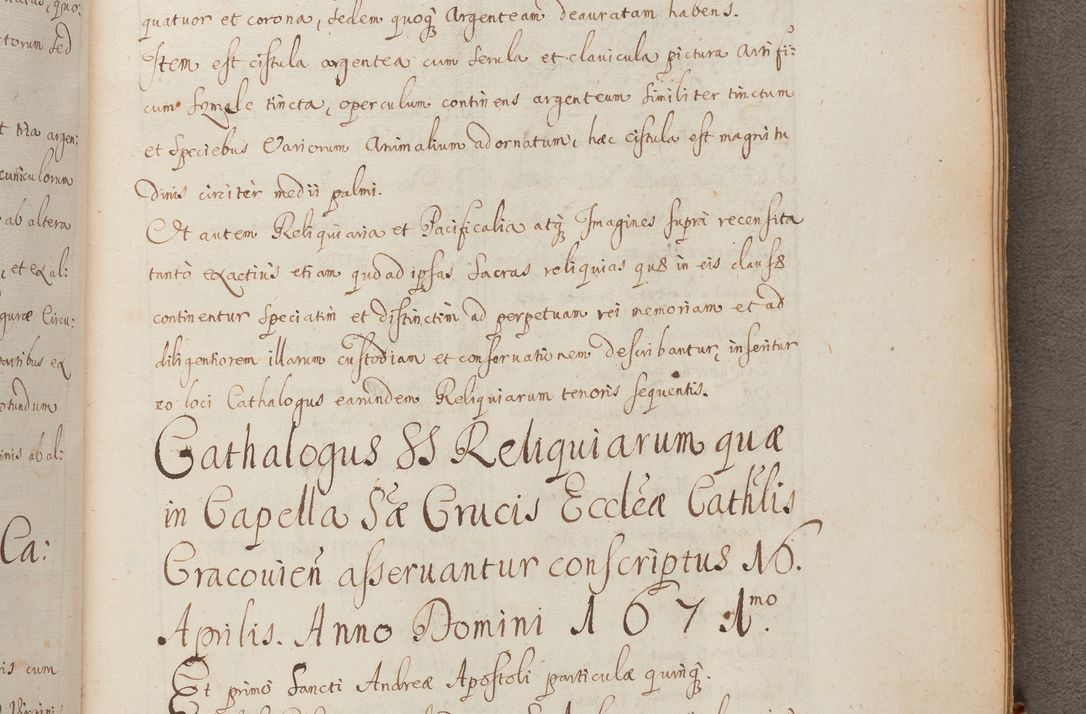 quatuor et corona, sedem quoq₃ Argenteam deauratam habens.
Item est cistula argentea cum serula et clauicula pictura Artifi:
cum Symele tincta, operculum continens argenteum similiter tinctum
et speciebus Variorum Animalium adornatum, hæc cistula est magnitu
dinis circiter medii palmi.
Ut autem Reliquiaria et Pacificalia atq₃ Imagines suprà recensita
tantò exactius etiam quoad ipsas Sacras reliquias quæ in eis clausæ
continentur speciatim et distinctim ad perpetuam rei memoriam et ad
diligentiorem illarum custodiam et conseruationem describantur, inseritur
eo loci Cathalogus earundem Reliquiarum tenoris sequentis.
Cathalogus SS Reliquiarum quæ
in Capella Sæ Crucis Eccleæ Cathlis
Cracouień asseruantur conscriptus 16.
Aprilis. Anno Domini 1671mo.
Et primò Sancti Andreæ Apostoli particulæ quinq₃.
ctorum sed
et una argen:
cuniculorum
ab altera
, et ex al:
guræ Circu:
partibus ex
otundum
inis ab al:
Ca:
is cum